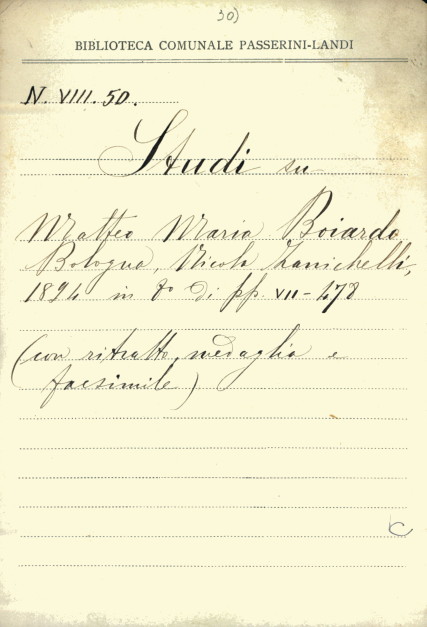 30)
BIBLIOTECA COMUNALE PASSERINI-LANDI
N. VIII. 50.
Studi su
Matteo Maria Boiardo
Bologna, Nicola Zanichelli,
1894 in 8º di pp. VII-478
(con ritratto, medaglia e
facsimile)
C